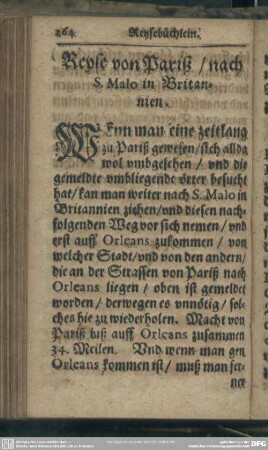 264 Reysebüchlein.
Reyse von Pariß / nach
S. Malo in Britan-
nien.
WEnn man eine zeitlang
zu Pariß gewesen / sich allda
wol umbgesehen / vnd die
gemeldte umbliegende örter besucht
hat / kan man weiter nach S. Malo in
Britannien ziehen / vnd diesen nach-
folgenden Weg vor sich nemen / vnd
erst auff Orleans zukommen / von
welcher Stadt / vnd von den andern /
die an der Strassen von Pariß nach
Orleans liegen / oben ist gemeldet
worden / derwegen es vnnötig / sol-
ches hie zu wiederholen. Macht von
Pariß biß auff Orleans zusammen
34. Meilen. Vnd wenn man gen
Orleans kommen ist / muß man fer-
ner